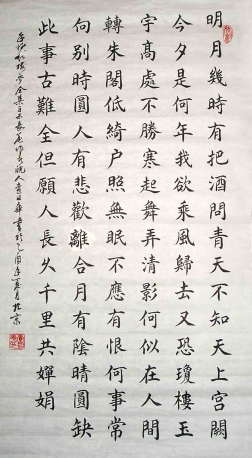 明月幾時有把酒問青天不知天上宮闕
今夕是何年我欲乘風歸去又恐瓊樓玉
宇高處不勝寒起舞弄清影何似在人間
轉朱閣低綺户照無眠不應有恨何事常
向別時圓人有悲歡離合月有陰晴圓缺
此事古難全但願人長久千里共嬋娟
書於乙酉年夏月北京